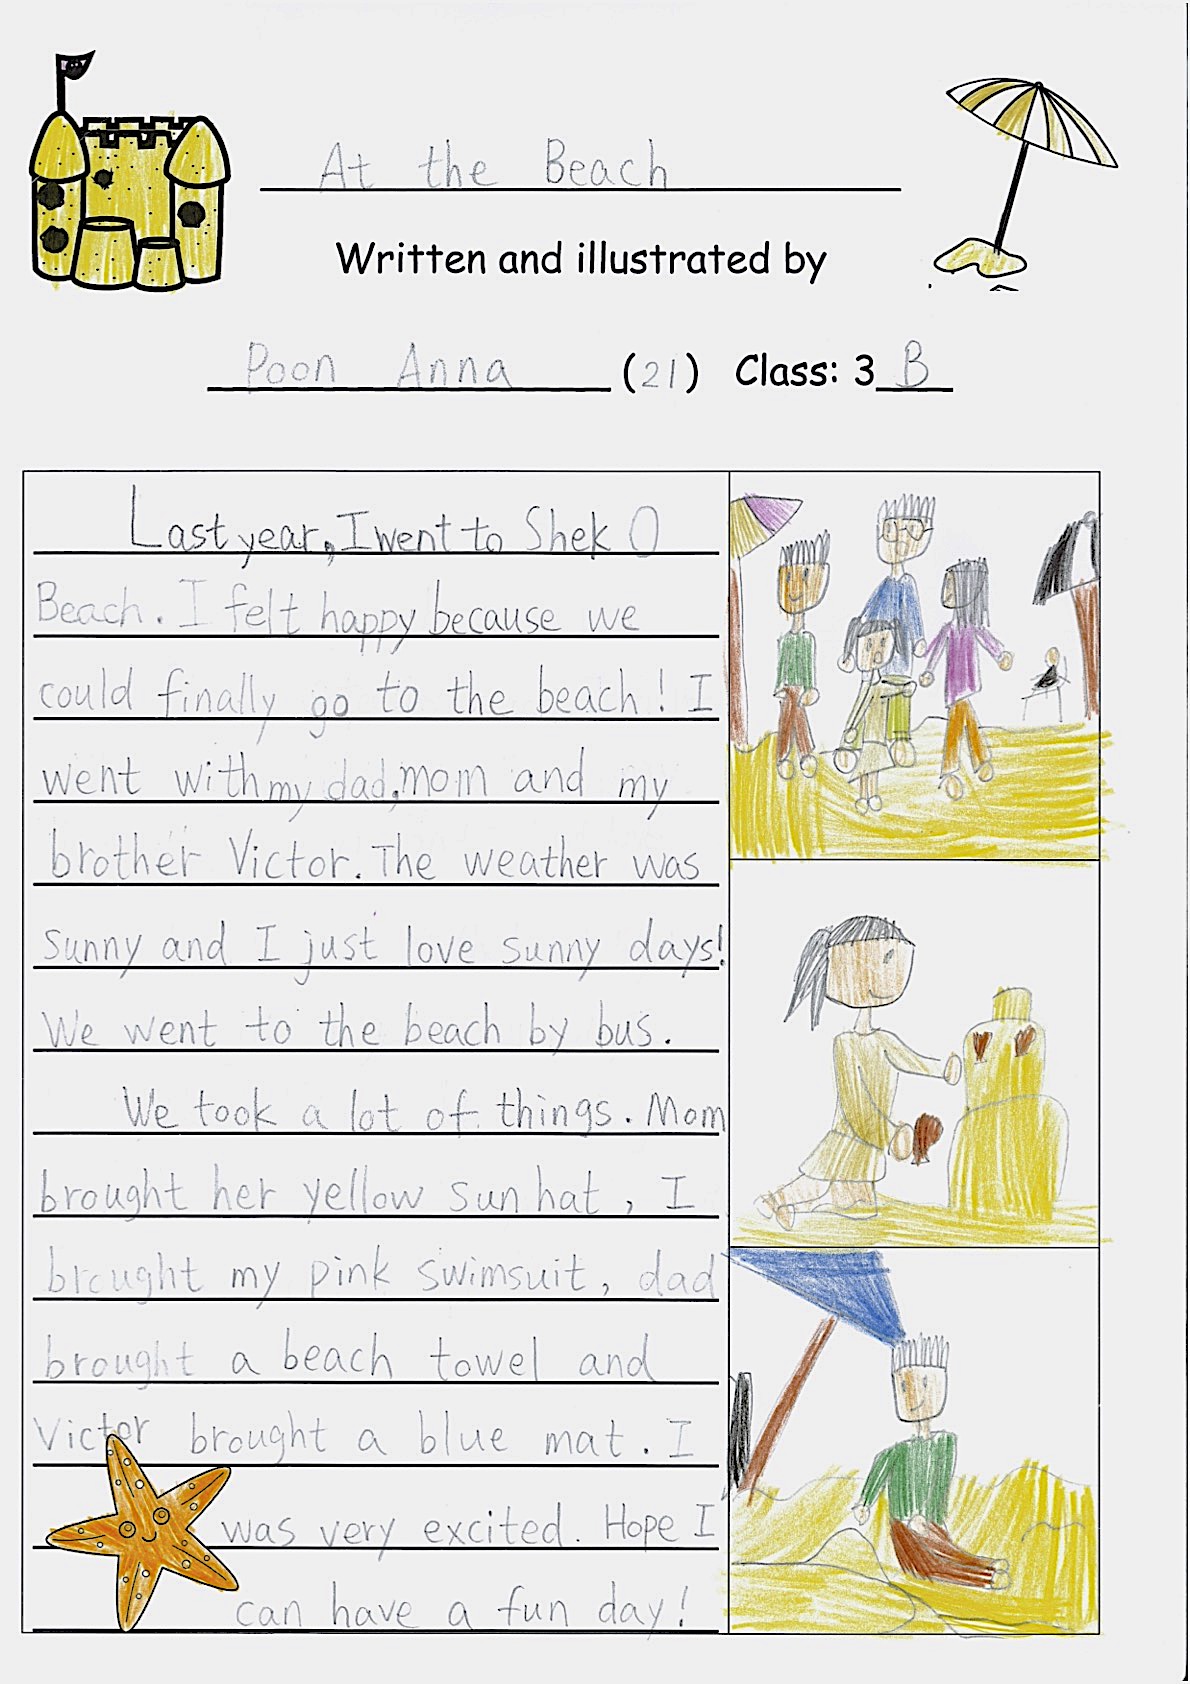 At the Beach
Written and illustrated by
Poon Anna (21) Class: 3 B
Last year, I went to Shek O
Beach. I felt happy because we
could finally go to the beach! I
went with my dad, mom and my
brother Victor. The weather was
sunny and I just love sunny days!
We went to the beach by bus.
We took a lot of things. Mom
brought her yellow sun hat, I
brought my pink swimsuit, dad
brought a beach towel and
Victor brought a blue mat. I
was very excited. Hope I
can have a fun day!